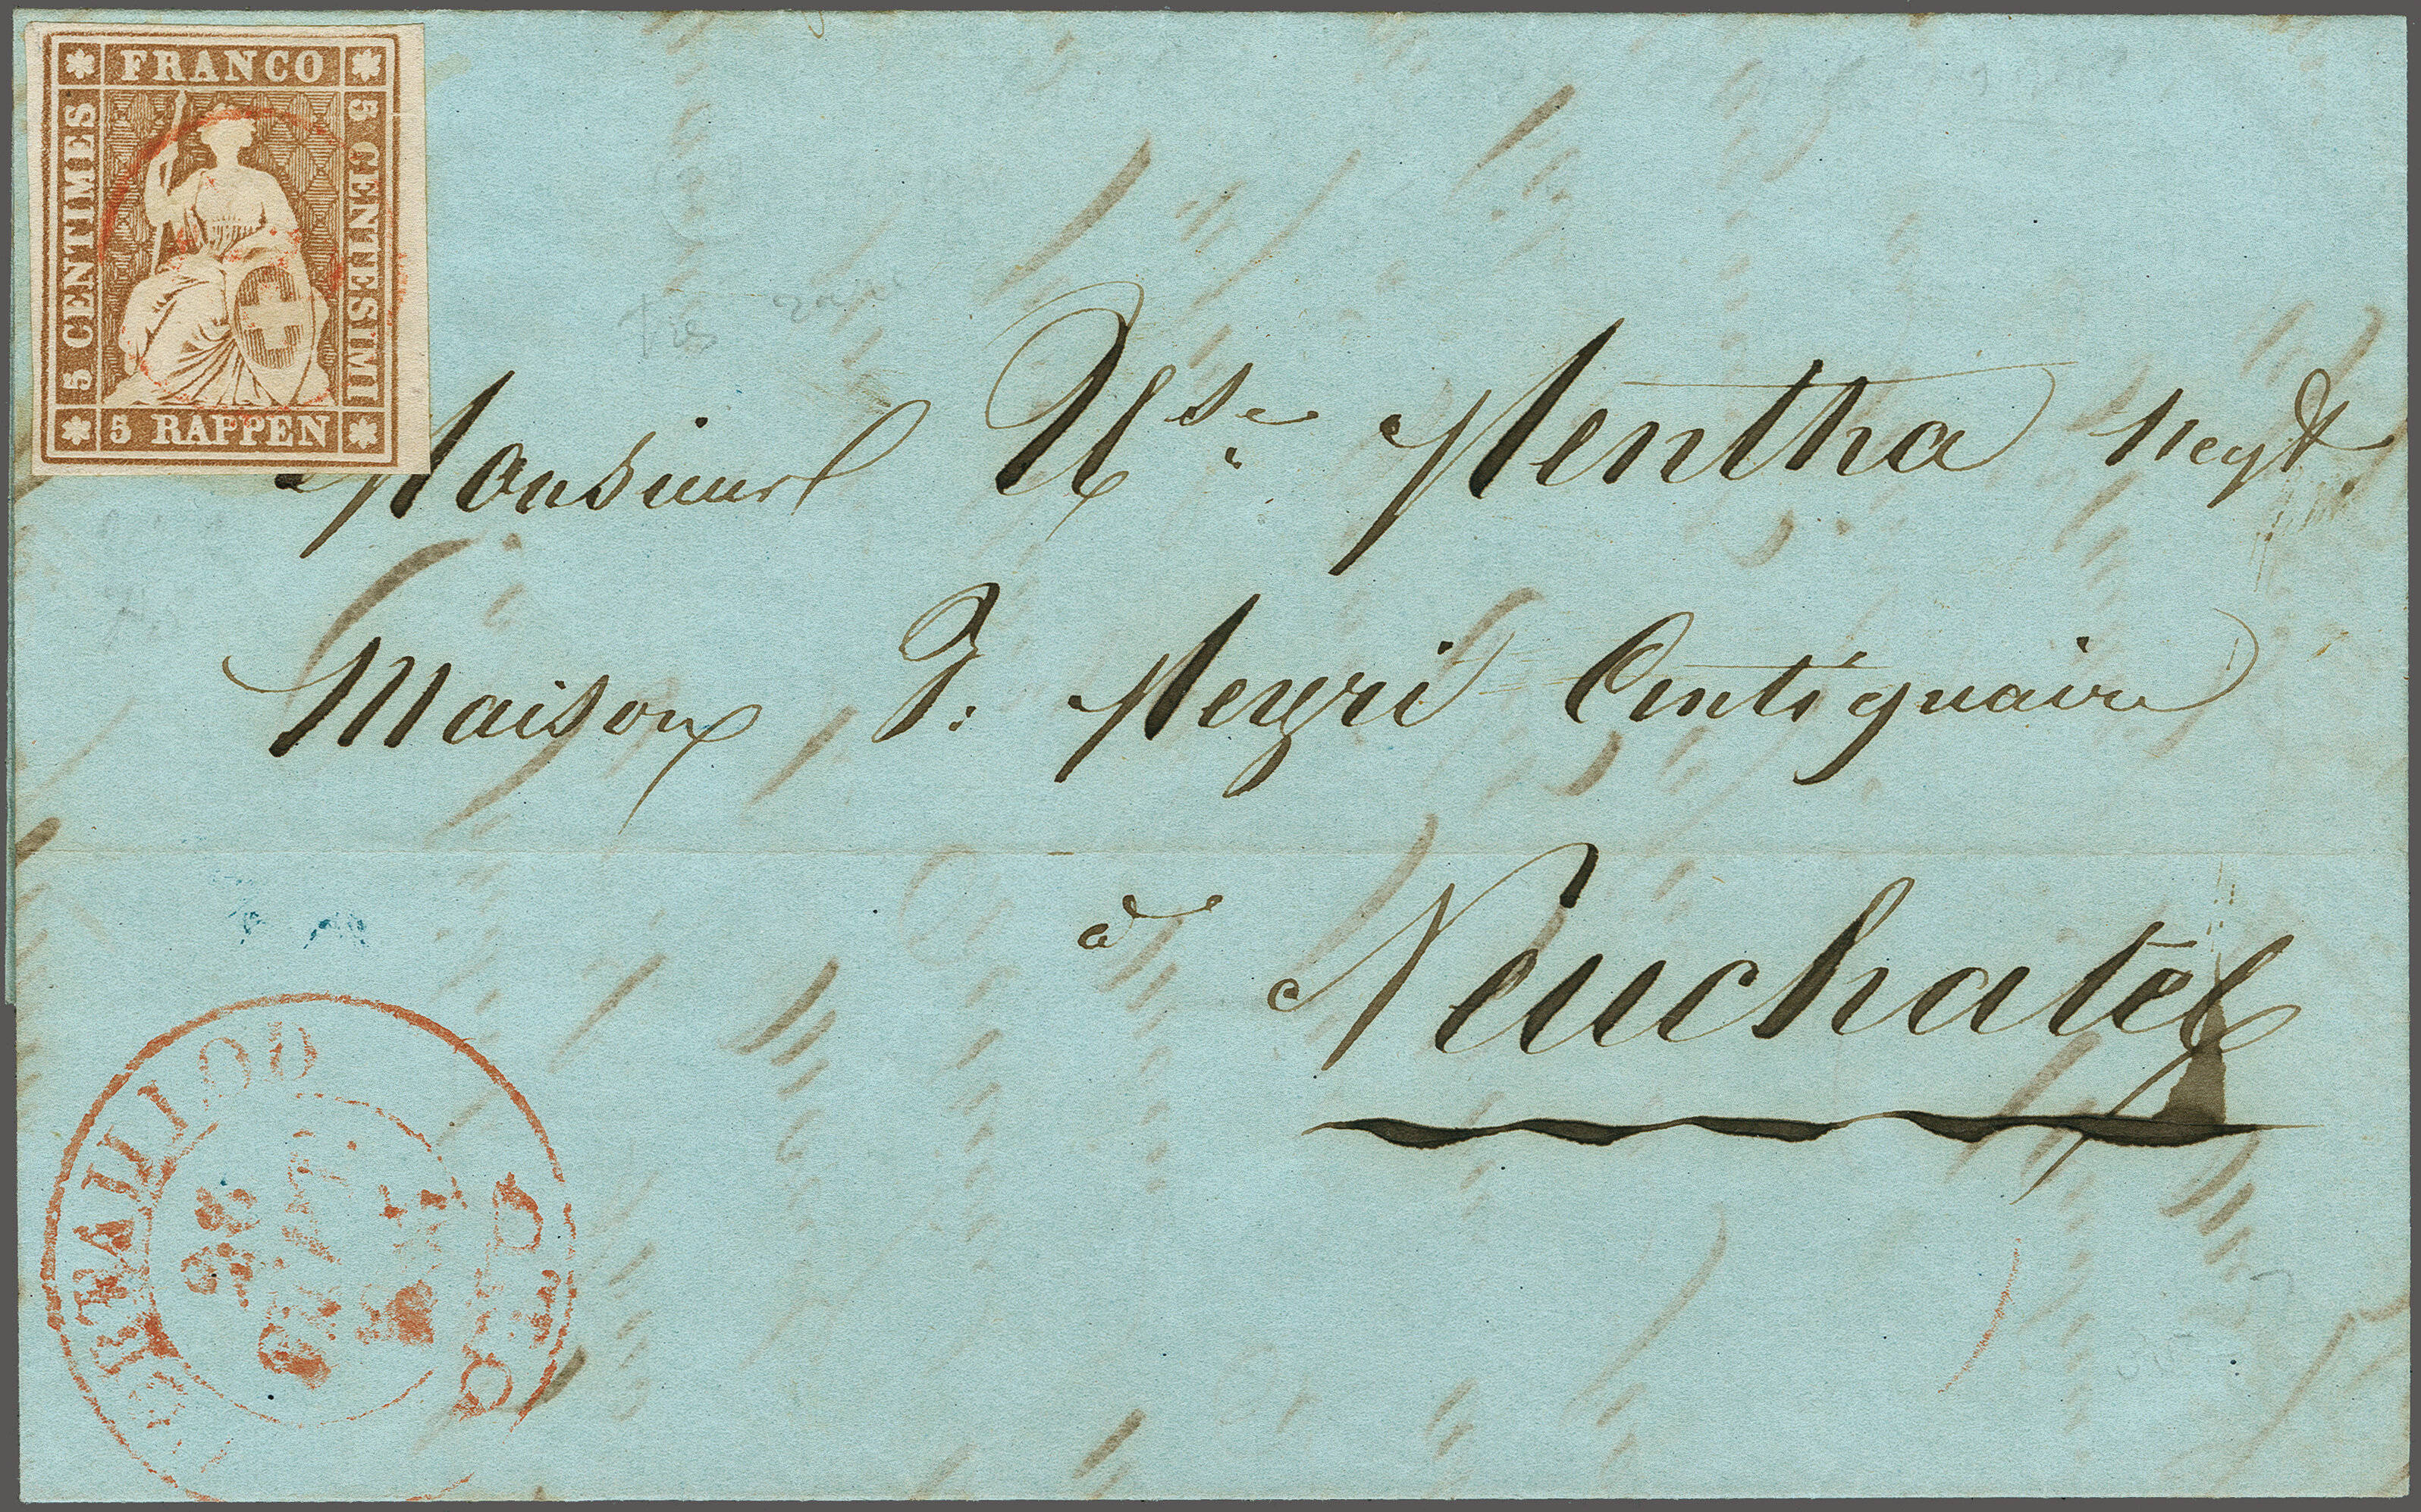 FRANCO
5 CENTIMES
5 CENTESIMI
5 RAPPEN
Monsieur Use Mentha Negt
Maison J: Meyri Antiquaire
à
Neuchatel
CORTAILLOD
28